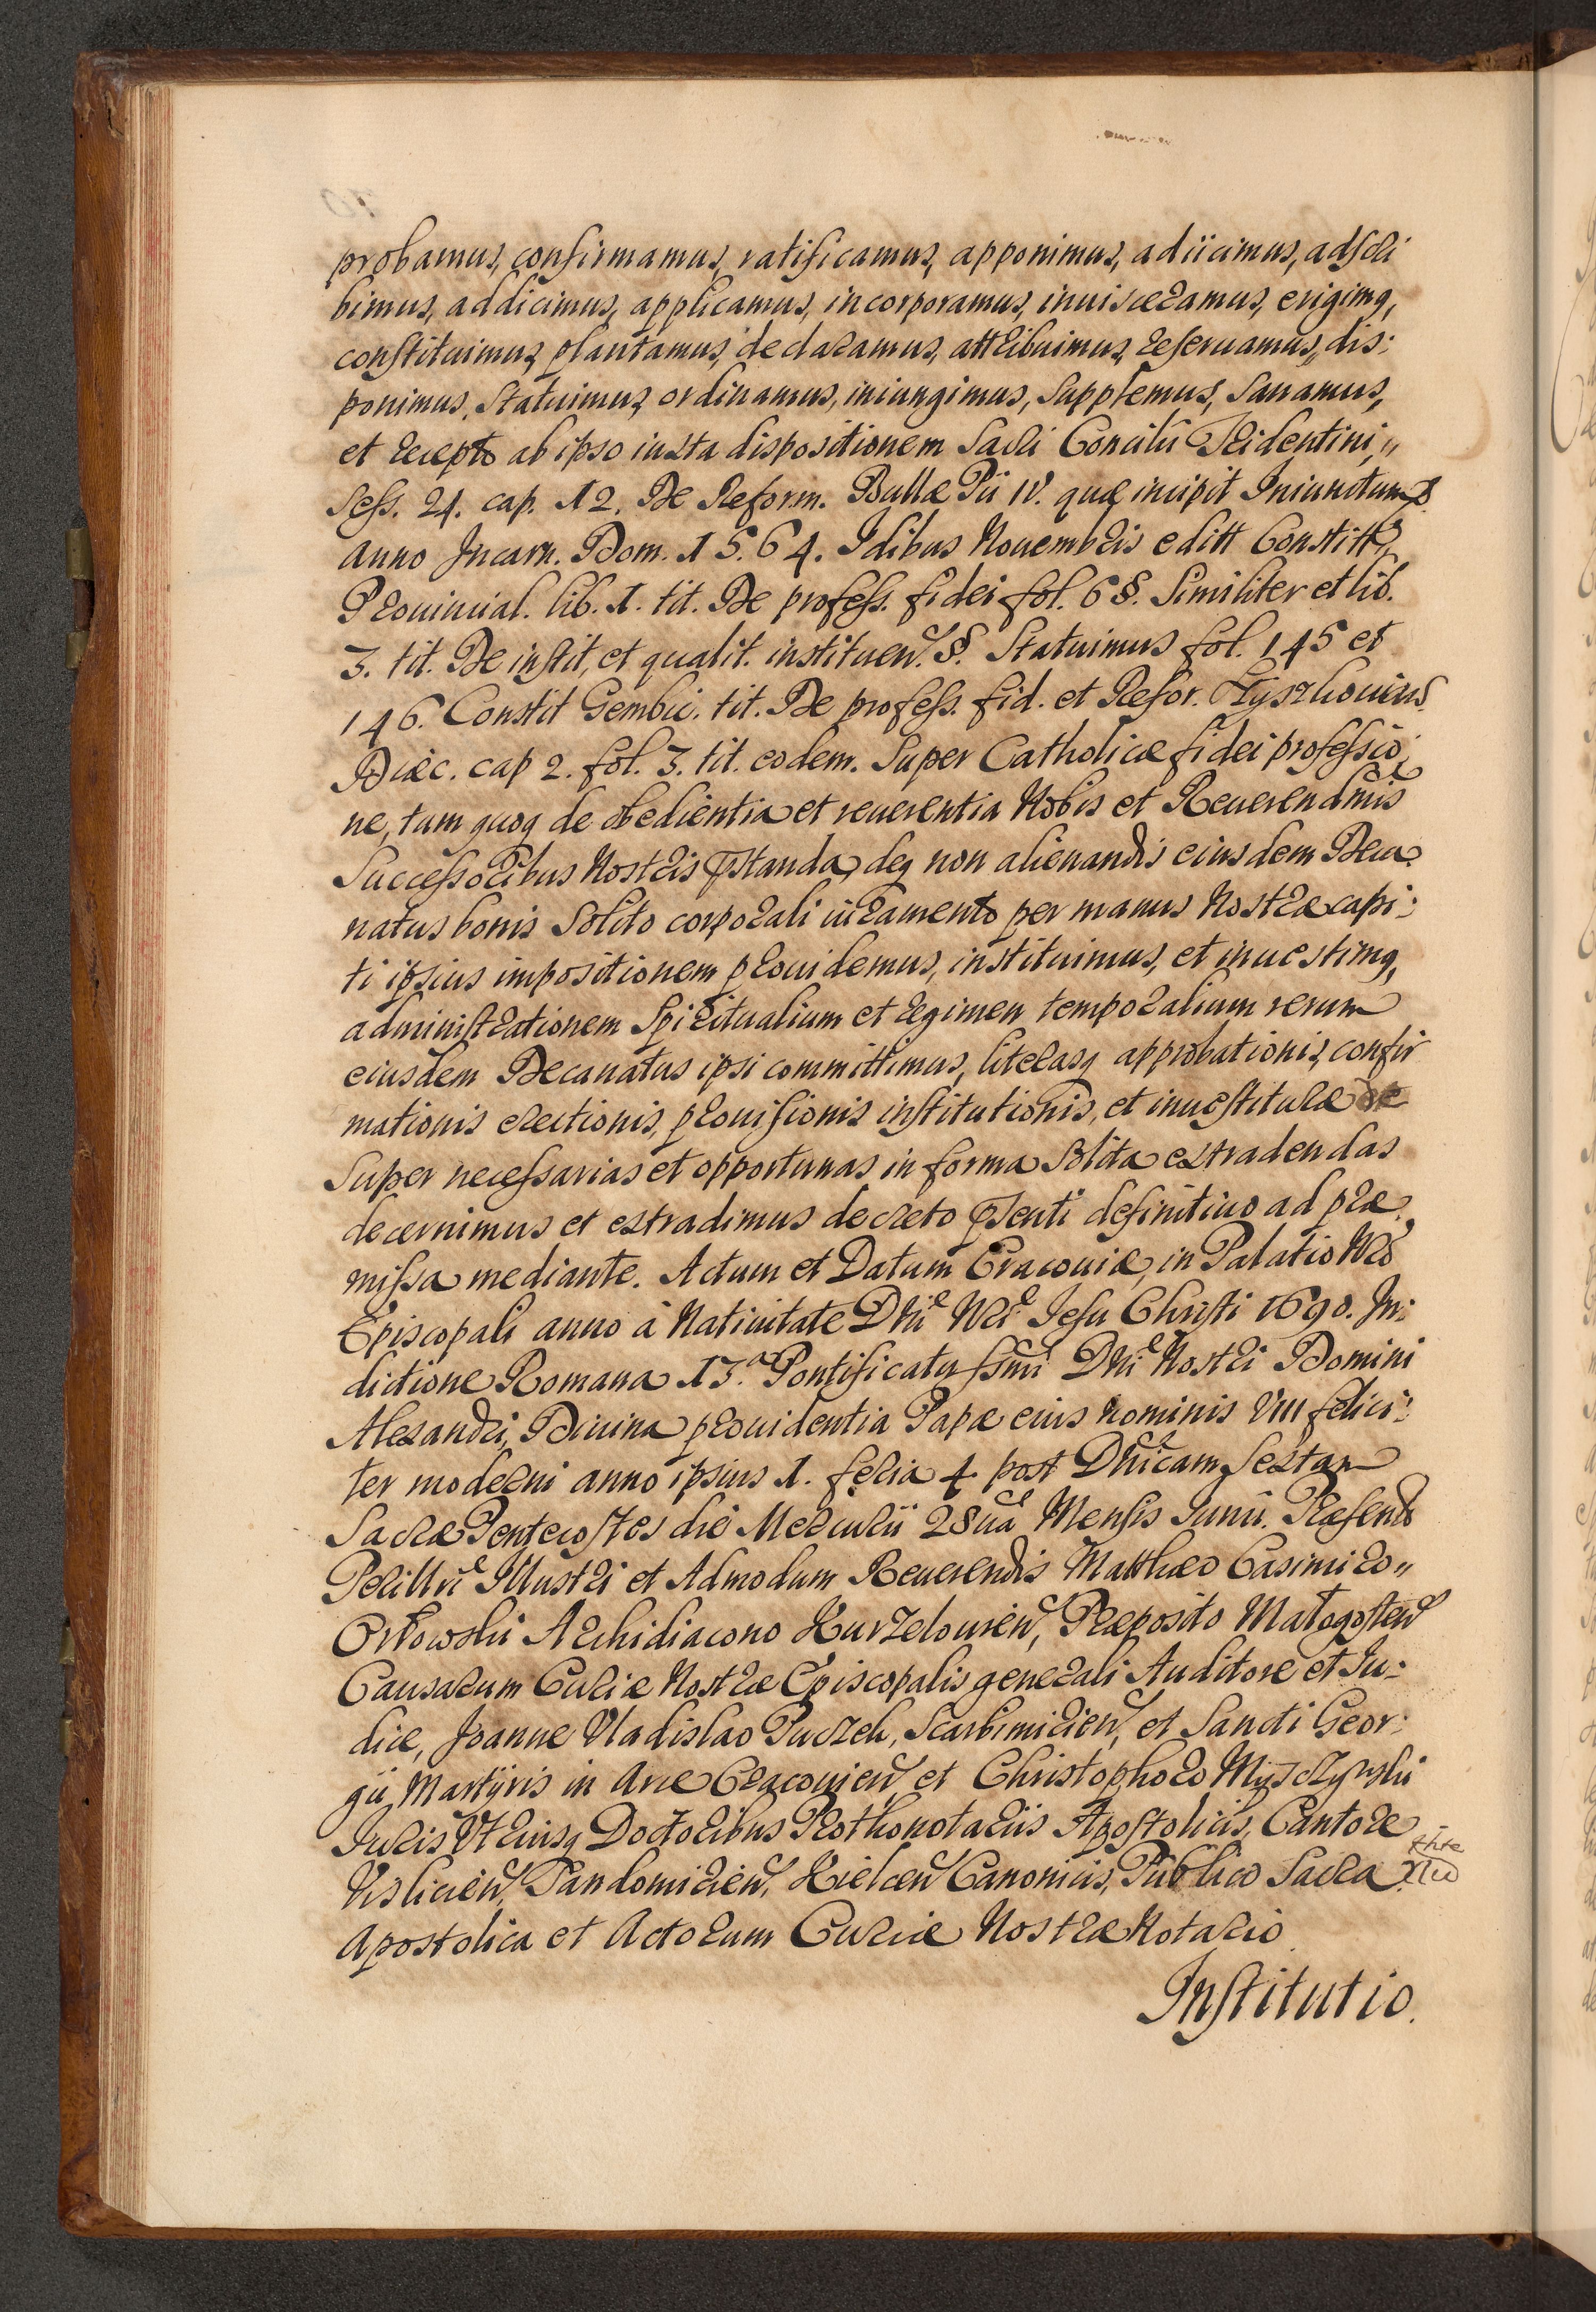 probamus, confirmamus, ratificamus, apponimus, adiicimus, adscri
bimus, addicimus, applicamus, incorporamus, inuisceramus, erigimq,
constituimus, plantamus, declaramus, attribuimus, reseruamus, dis:
ponimus, Statuimus, ordinamus, iniungimus, Supplemus, Sanamus,
et recepto ab ipso iuxta dispositionem Sacri Concilii Tridentini,
Sess. 24. cap. 12. De Reform. Bullæ Pii IV. quæ incipit Iniunctum
anno Incarn. Dom. 1564. Idibus Nouembris editt Constitt
Prouincial. lib. 1. tit. De profess. fidei fol. 6 §. Similiter et lib.
3. tit. De instit, et qualit. instituen. §. Statuimus fol. 145 et
146. Constit Gembic. tit. De profess. fid. et Refor.
Diæc. cap 2. fol. 3. tit. eodem. Super Catholicæ fidei professio:
ne, tum quoq de obedientia et reuerentia Nobis et Reuerendmis
Successoribus Nostris pstanda, deq non alienandis eiusdem Deca
natus bonis Solito corporali iuramento per manus Nostræ capi:
ti ipsius impositionem prouidemus, instituimus, et inuestimq,
administrationem Spiritualium et regimen temporalium rerum
eiusdem Decanatus ipsi committimus, literasq approbationis, confir
mationis erectionis, prouisionis institutionis, et inuestituræ de
Super necessarias et opportunas in forma Solita extradendas
decernimus et extradimus decreto psenti definitiuo ad præ
missa mediante. Actum et Datum Cracouiæ, in Palatio Nro
Episcopali anno à Natiuitate Dni Nri Iesu Christi 1690. In:
dictione Romana 13.a Pontificatus Ssmi Dni Nostri Domini
Alexandri, Diuina prouidentia Papæ eius nominis VIII felici:
ter moderni anno ipsius 1. feria 4. post Dnicam Sextam
Sacræ Pentecostes die Mercurii 28ua Mensis Iunii. Præsentt
Perillri Illustri et Admodum Reuerendis Matthæo Casimiro
Orłowski Archidiacono Kurzelouien, Præposito Małogosten
Causarum Curiæ Nostræ Episcopalis generali Auditore et Iu:
dice, Joanne Vladislao Puczek, Scarbimirien, et Sancti Geor:
gii Martyris in Arce Cracouien et Christophoro Myszczynski
Iuris Vtriusq Doctoribus Prothonotariis Apostolicis, Cantore
Visliciен, Sandomirien, Kielcen Canonicis, Publico Sacra
Apostolica et Actorum Curiæ Nostræ Notario.
Institutio.